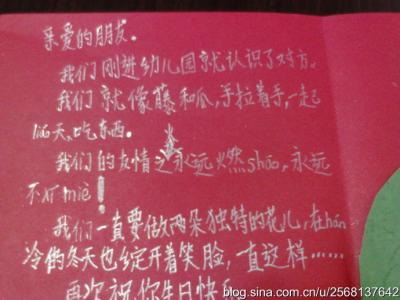 亲爱的朋友。
我们刚进幼儿园就认识了对方。
我们就像藤和瓜,手拉着手,一起
聊天,吃东西。
我们的友情之火永远燃shāo,永远
不 miè!
我们一直要做两朵独特的花儿,在hán
冷的冬天也绽开着笑脸,一直这样……
再次祝你生日快
blog.sina.com.cn/u/2568137642